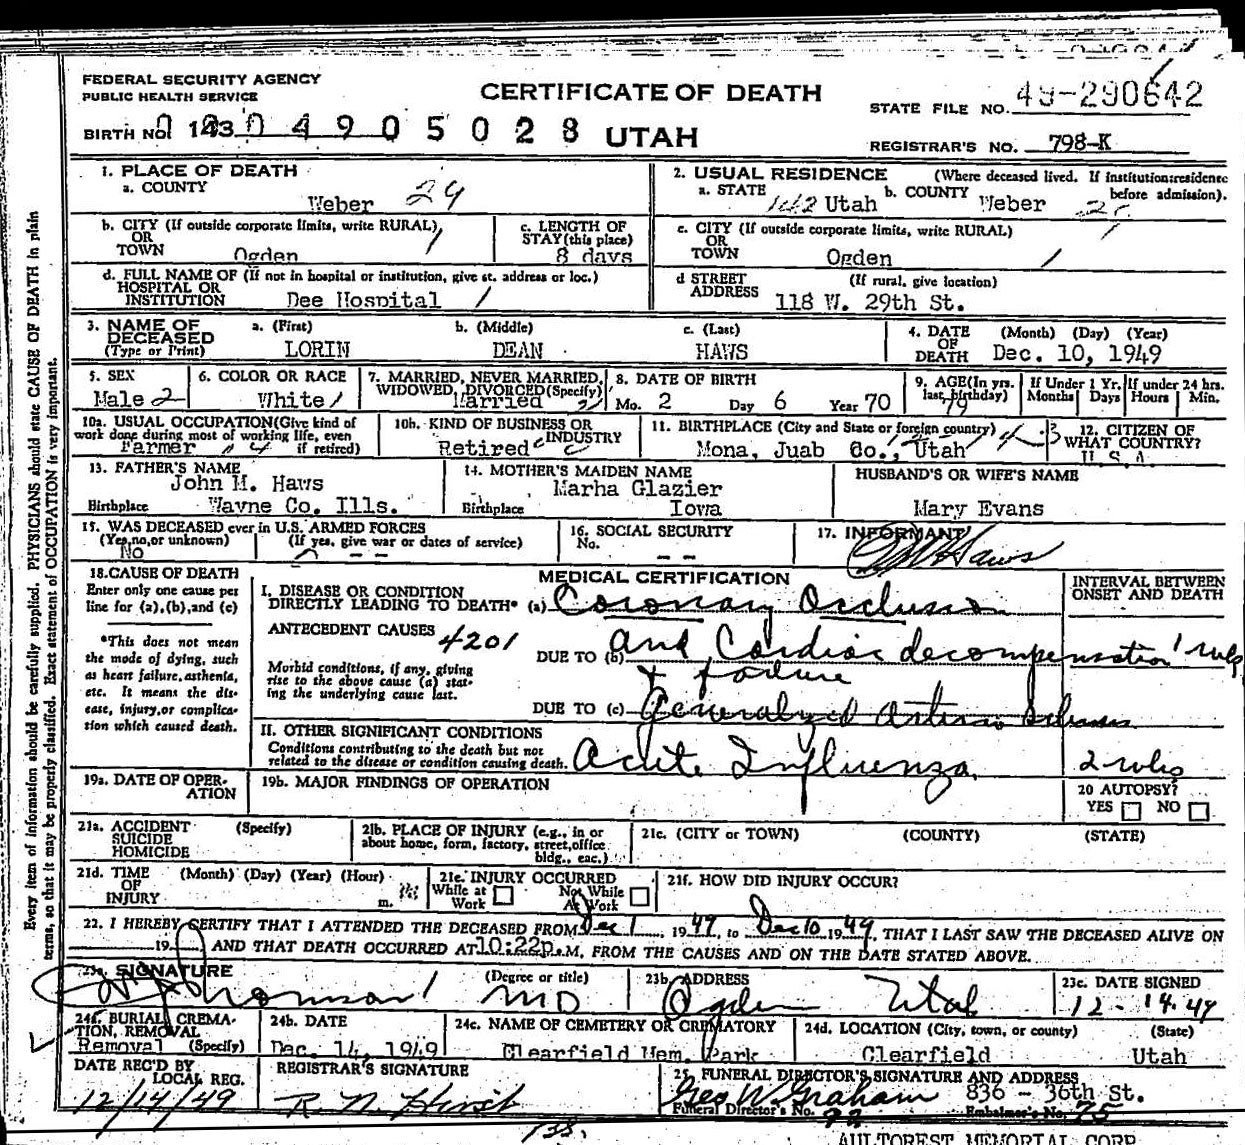 FEDERAL SECURITY AGENCY
PUBLIC HEALTH SERVICE
CERTIFICATE OF DEATH
STATE FILE NO. 49-290642
BIRTH NO. 143 04905028 UTAH
REGISTRAR'S NO. 798-K
Every item of information should be carefully supplied. PHYSICIANS should state CAUSE OF DEATH in plain
terms, so that it may be properly classified. Exact statement of OCCUPATION is very important.
1. PLACE OF DEATH
a. COUNTY
Weber 29
2. USUAL RESIDENCE (Where deceased lived. If institution: residence before admission).
a. STATE Utah b. COUNTY Weber
b. CITY (If outside corporate limits, write RURAL)
OR
TOWN Ogden
c. LENGTH OF
STAY (this place)
8 days
c. CITY (If outside corporate limits, write RURAL)
OR
TOWN Ogden
d. FULL NAME OF (If not in hospital or institution, give st. address or loc.)
HOSPITAL OR
INSTITUTION Dee Hospital
d STREET (If rural, give location)
ADDRESS 118 W. 29th St.
3. NAME OF
DECEASED
(Type or Print)
a. (First) b. (Middle) c. (Last)
LORIN DEAN HAWS
4. DATE (Month) (Day) (Year)
OF
DEATH Dec. 10, 1949
5. SEX
Male 2
6. COLOR OR RACE
White
7. MARRIED, NEVER MARRIED,
WIDOWED, DIVORCED (Specify)
Married
8. DATE OF BIRTH
Mo. 2 Day 6 Year 70
9. AGE (In yrs.
last birthday)
79
If Under 1 Yr.
Months Days
If under 24 hrs.
Hours Min.
10a. USUAL OCCUPATION (Give kind of
work done during most of working life, even
if retired)
Farmer
10b. KIND OF BUSINESS OR
INDUSTRY
Retired
11. BIRTHPLACE (City and State or foreign country)
Mona, Juab Co., Utah
12. CITIZEN OF
WHAT COUNTRY?
U.S.A.
13. FATHER'S NAME
John M. Haws
Birthplace Wayne Co. Ills.
14. MOTHER'S MAIDEN NAME
Marha Glazier
Birthplace Iowa
HUSBAND'S OR WIFE'S NAME
Mary Evans
15. WAS DECEASED ever in U.S. ARMED FORCES
(Yes, no, or unknown) (If yes, give war or dates of service)
No - -
16. SOCIAL SECURITY
No.
- -
17. INFORMANT
Haws
18. CAUSE OF DEATH
Enter only one cause per
line for (a), (b), and (c)
*This does not mean
the mode of dying, such
as heart failure, asthenia,
etc. It means the dis-
ease, injury, or complica-
tion which caused death.
MEDICAL CERTIFICATION
INTERVAL BETWEEN
ONSET AND DEATH
I. DISEASE OR CONDITION
DIRECTLY LEADING TO DEATH* (a) Coronary Occlusion
ANTECEDENT CAUSES 4201
DUE TO (b) and Cardiac decompensation 1 wks
+ failure
Morbid conditions, if any, giving
rise to the above cause (a) stat-
ing the underlying cause last.
DUE TO (c) Generalized Arterio Sclerosis
II. OTHER SIGNIFICANT CONDITIONS
Conditions contributing to the death but not
related to the disease or condition causing death.
Acute Influenza. 2 wks
19a. DATE OF OPER-
ATION
19b. MAJOR FINDINGS OF OPERATION
20 AUTOPSY?
YES NO
21a. ACCIDENT (Specify)
SUICIDE
HOMICIDE
21b. PLACE OF INJURY (e.g., in or
about home, form, factory, street, office
bldg., eac.)
21c. (CITY or TOWN) (COUNTY) (STATE)
21d. TIME (Month) (Day) (Year) (Hour)
OF
INJURY m.
21e. INJURY OCCURRED
While at Work Not While At Work
21f. HOW DID INJURY OCCUR?
22. I HEREBY CERTIFY THAT I ATTENDED THE DECEASED FROM Dec 1, 1949, to Dec 10 1949, THAT I LAST SAW THE DECEASED ALIVE ON
19 AND THAT DEATH OCCURRED AT 10:22p.M, FROM THE CAUSES AND ON THE DATE STATED ABOVE.
23a. SIGNATURE (Degree or title)
Thomson MD
23b. ADDRESS
Ogden Utah
23c. DATE SIGNED
12-14-49
24a. BURIAL, CREMA-
TION, REMOVAL
Removal (Specify)
24b. DATE
Dec. 14, 1949
24c. NAME OF CEMETERY OR CREMATORY
Clearfield Mem. Park
24d. LOCATION (City, town, or county) (State)
Clearfield Utah
DATE REC'D BY
LOCAL REG.
12/14/49
REGISTRAR'S SIGNATURE
25. FUNERAL DIRECTOR'S SIGNATURE AND ADDRESS
Geo W. Graham 836 - 36th St.
Funeral Director's No. 92 Embalmer's No. 75
AULTOREST MEMORIAL CORP